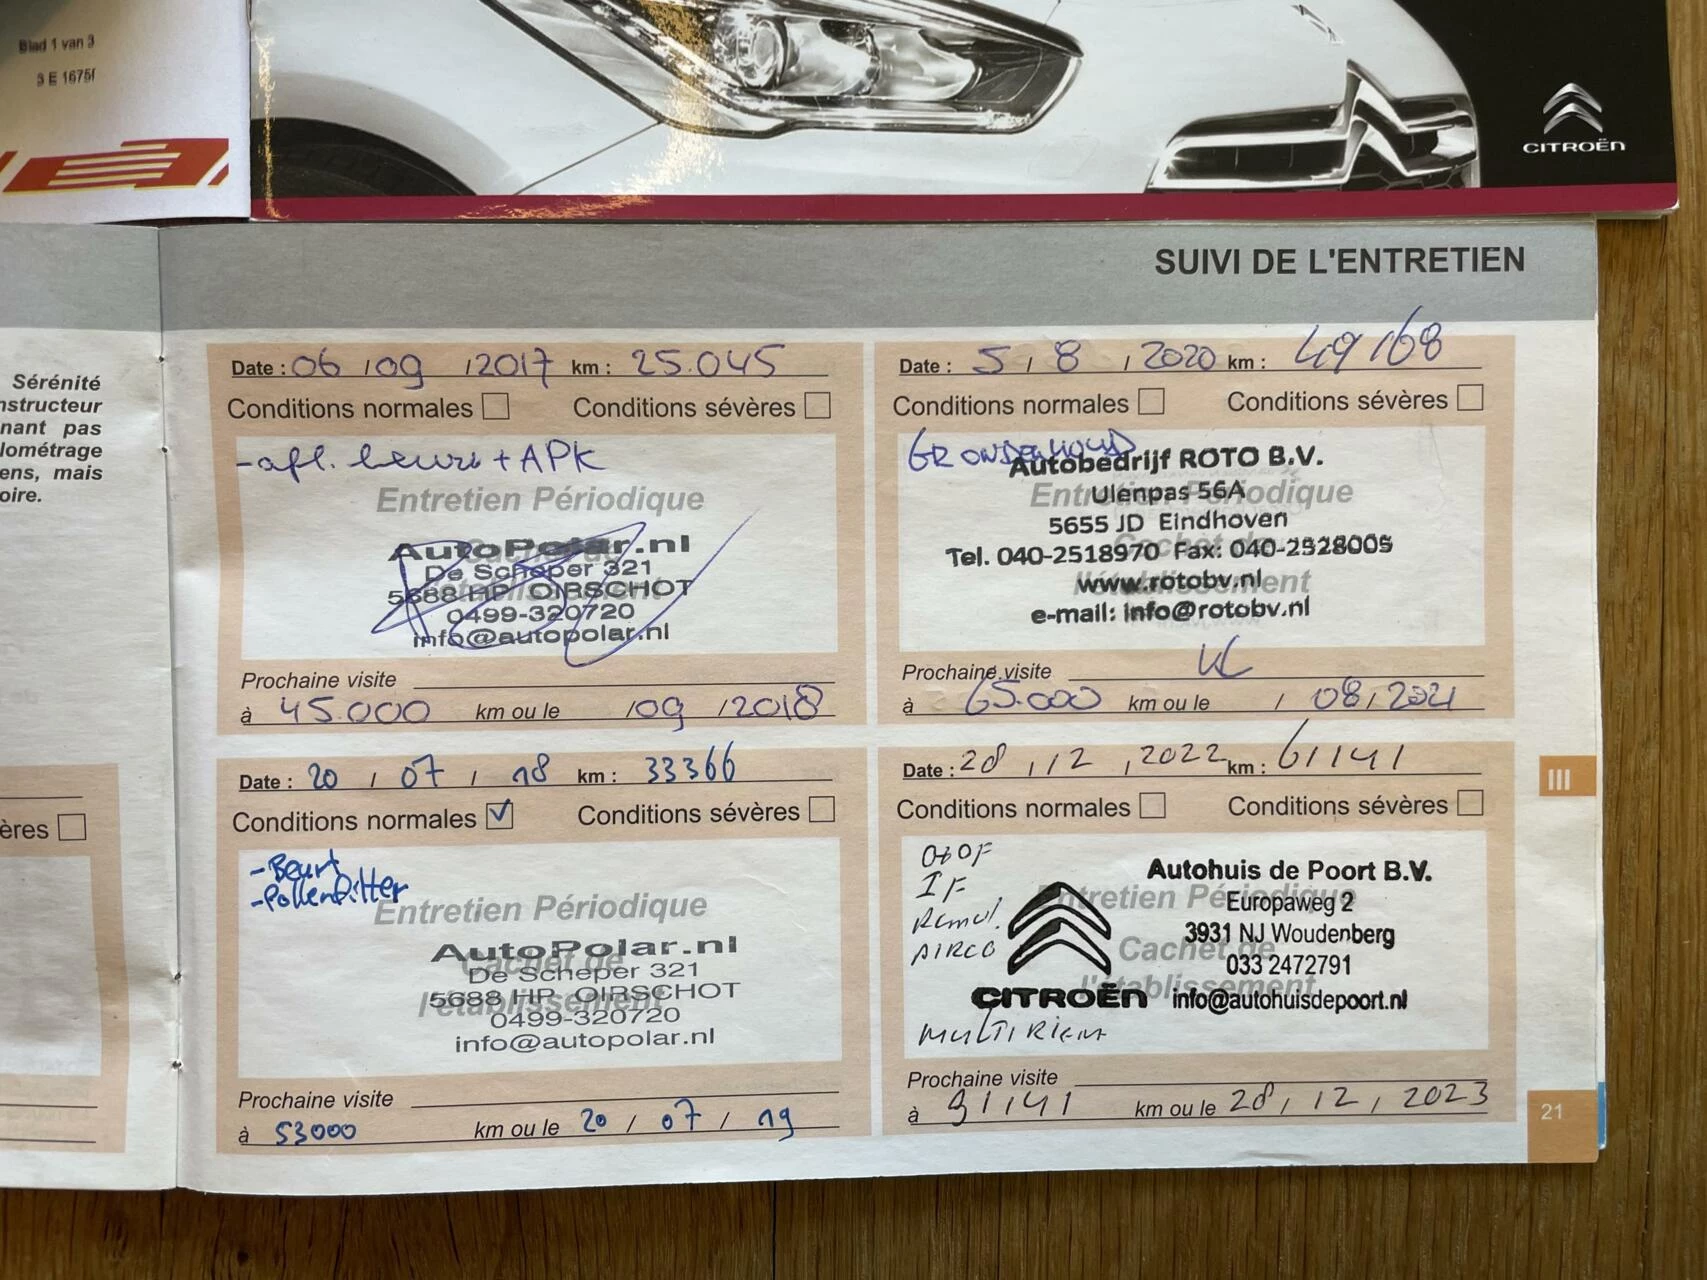 Blad 1 van 3
3 E 1675f
CITROËN
Sérénité
nstructeur
nant pas
lométrage
ens, mais
oire.
ères
SUIVI DE L'ENTRETIEN
Date : 06 / 09 / 2017 km : 25.045
Conditions normales Conditions sévères
-afl. beurt + APK
Entretien Périodique
Cachet de
l'établissement
AutoPolar.nl
De Scheper 321
5688 HP OIRSCHOT
0499-320720
info@autopolar.nl
Prochaine visite
à 45.000 km ou le / 09 / 2018
Date : 20 / 07 / 18 km : 33366
Conditions normales ✓ Conditions sévères
-Beurt
-Pollenfilter
Entretien Périodique
Cachet de
l'établissement
AutoPolar.nl
De Scheper 321
5688 HP OIRSCHOT
0499-320720
info@autopolar.nl
Prochaine visite
à 53000 km ou le 20 / 07 / 19
Date : 5 / 8 / 2020 km : 49168
Conditions normales Conditions sévères
GR ONDERHOUD
Entretien Périodique
Cachet de
l'établissement
Autobedrijf ROTO B.V.
Ulenpas 56A
5655 JD Eindhoven
Tel. 040-2518970 Fax: 040-2528005
www.rotobv.nl
e-mail: info@rotobv.nl
Prochaine visite
à 65.000 km ou le / 08 / 2021
Date : 28 / 12 , 2022 km : 61141
Conditions normales Conditions sévères
IF
AIRCO
MULTIRIEM
Entretien Périodique
Cachet de
l'établissement
CITROËN
Autohuis de Poort B.V.
Europaweg 2
3931 NJ Woudenberg
033 2472791
info@autohuisdepoort.nl
Prochaine visite
à 91141 km ou le 28 / 12 , 2023
III
21